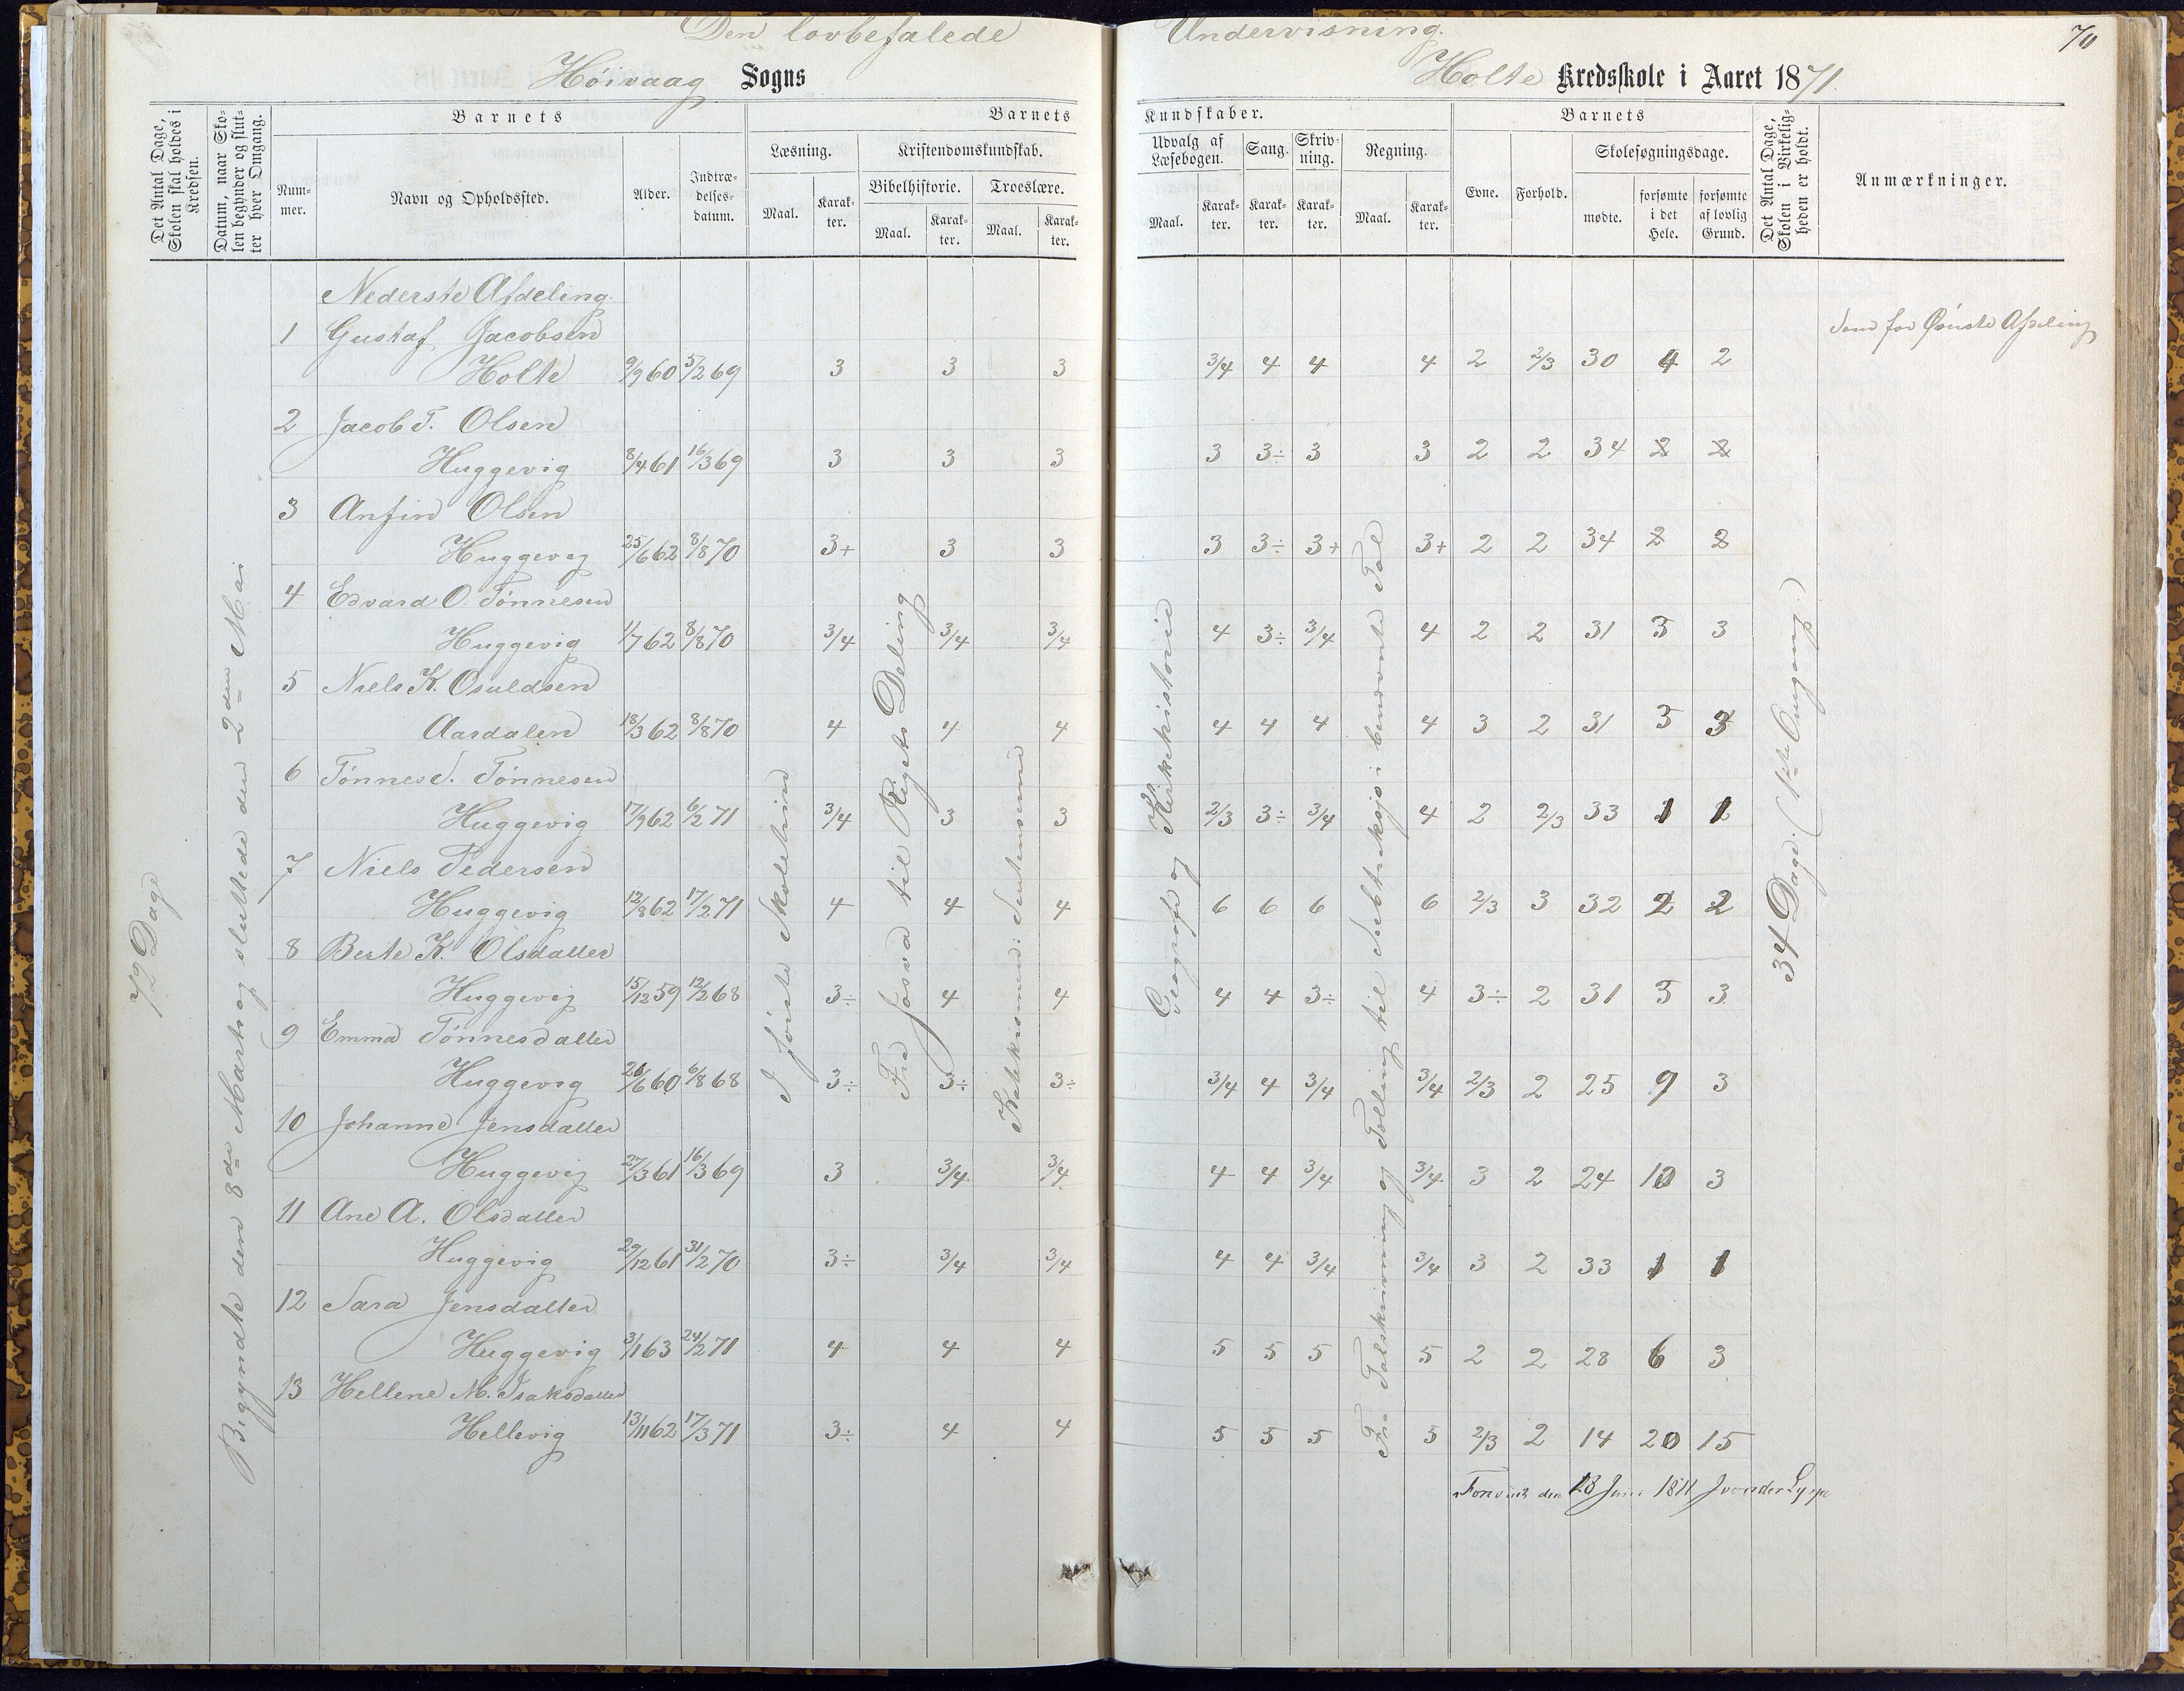 Den lovbefalede Undervisning.
70
Høivaag Sogns
Holte Kredsskole i Aaret 1871.
Det Antal Dage, Skolen skal holdes i Kredsen.
Datum, naar Skolen begynder og slutter hver Omgang.
Barnets
Nummer.
Navn og Opholdssted.
Alder.
Indtrædelsesdatum.
Barnets
Læsning.
Maal.
Karakter.
Kristendomskundskab.
Bibelhistorie.
Maal.
Karakter.
Troeslære.
Maal.
Karakter.
Kundskaber.
Udvalg af Læsebogen.
Maal.
Karakter.
Sang.
Karakter.
Skrivning.
Karakter.
Regning.
Maal.
Karakter.
Barnets
Evne.
Forhold.
Skolesøgningsdage.
mødte.
forsømte i det Hele.
forsømte af lovlig Grund.
Det Antal Dage, Skolen i Virkeligheden er holdt.
Anmærkninger.
72 Dage
Begyndte den 8de Marts og sluttede den 2den Mai
I første Skoletrin
Fra Josva til Rigets Deling
Katekismus:
Geografi og Kirkehistorie
Fra Talskrivning og Tælling til Subtraksjo i benævnte Tal
34 Dage. (1ste Omgang.)
Nederste Afdeling.
Som for Øverste Afdeling
1 Gustaf Jacobsen
Holte 9/9 60 5/2 69 3 3 3 3/4 4 4 4 2 2/3 30 4 2
2 Jacob T. Olsen
Huggevig 8/4 61 16/3 69 3 3 3 3 3÷ 3 3 2 2 34 2 2
3 Anfin Olsen
Huggevig 25/6 62 8/8 70 3+ 3 3 3 3÷ 3+ 3+ 2 2 34 2 2
4 Edvard O. Tønnesen
Huggevig 1/7 62 8/8 70 3/4 3/4 3/4 4 3÷ 3/4 4 2 2 31 3 3
5 Niels K. Osuldsen
Aardalen 18/3 62 8/8 70 4 4 4 4 4 4 4 3 2 31 3 3
6 Tønnes T. Tønnesen
Huggevig 17/9 62 6/2 71 3/4 3 3 2/3 3÷ 3/4 4 2 2/3 33 1 1
7 Niels Pedersen
Huggevig 12/8 62 17/2 71 4 4 4 6 6 6 6 2/3 3 32 2 2
8 Berte K. Olsdatter
Huggevig 15/12 59 12/2 68 3÷ 4 4 4 4 3÷ 4 3÷ 2 31 3 3
9 Emma Tønnesdatter
Huggevig 28/6 60 6/8 68 3÷ 3÷ 3÷ 3/4 4 3/4 3/4 2/3 2 25 9 3
10 Johanne Jensdatter
Huggevig 27/3 61 16/3 69 3 3/4 3/4 4 4 3/4 3/4 3 2 24 10 3
11 Ane A. Olsdatter
Huggevig 29/12 61 31/2 70 3÷ 3/4 3/4 4 4 3/4 3/4 3 2 33 1 1
12 Sara Jensdatter
Huggevig 3/1 63 24/2 71 4 4 4 5 5 5 5 2 2 28 6 3
13 Hellene M. Isaksdatter
Hellevig 13/11 62 17/3 71 3÷ 4 4 5 5 5 5 2/3 2 14 20 15
den 28 Juni 1871 J von der Lyppe